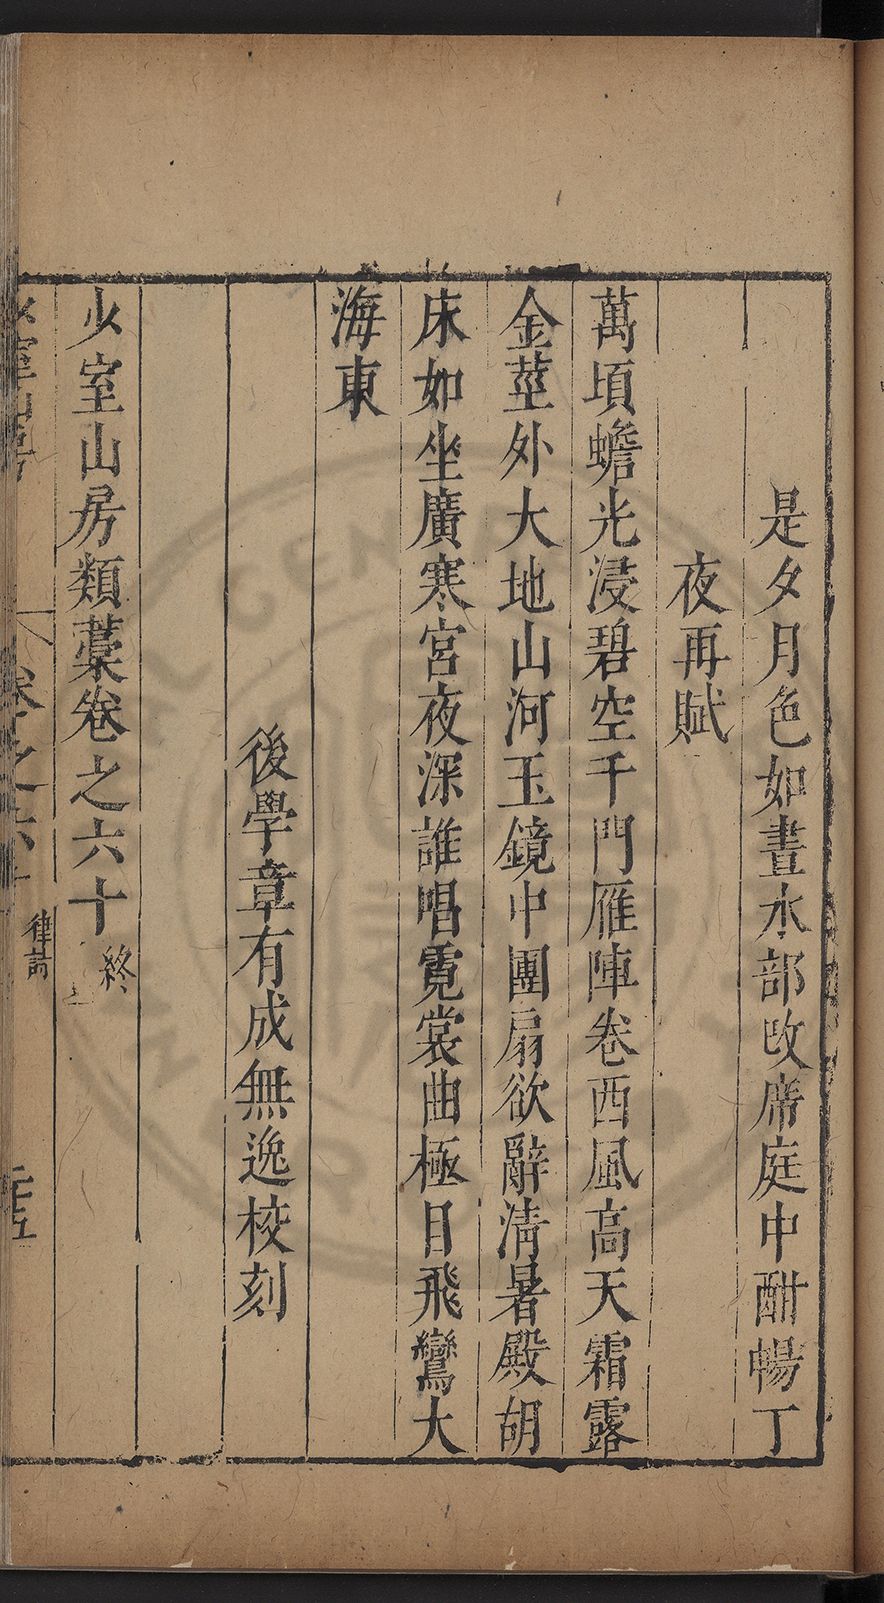 是夕月色如晝水部改席庭中酣暢丁
夜再賦
萬頃蟾光浸碧空千門雁陣卷西風高天霜露
金莖外大地山河玉鏡中團扇欲辭清暑殿胡
床如坐廣寒宮夜深誰唱霓裳曲極目飛鸞大
海東
後學章有成無逸校刻
少室山房類藁卷之六十終
律詩